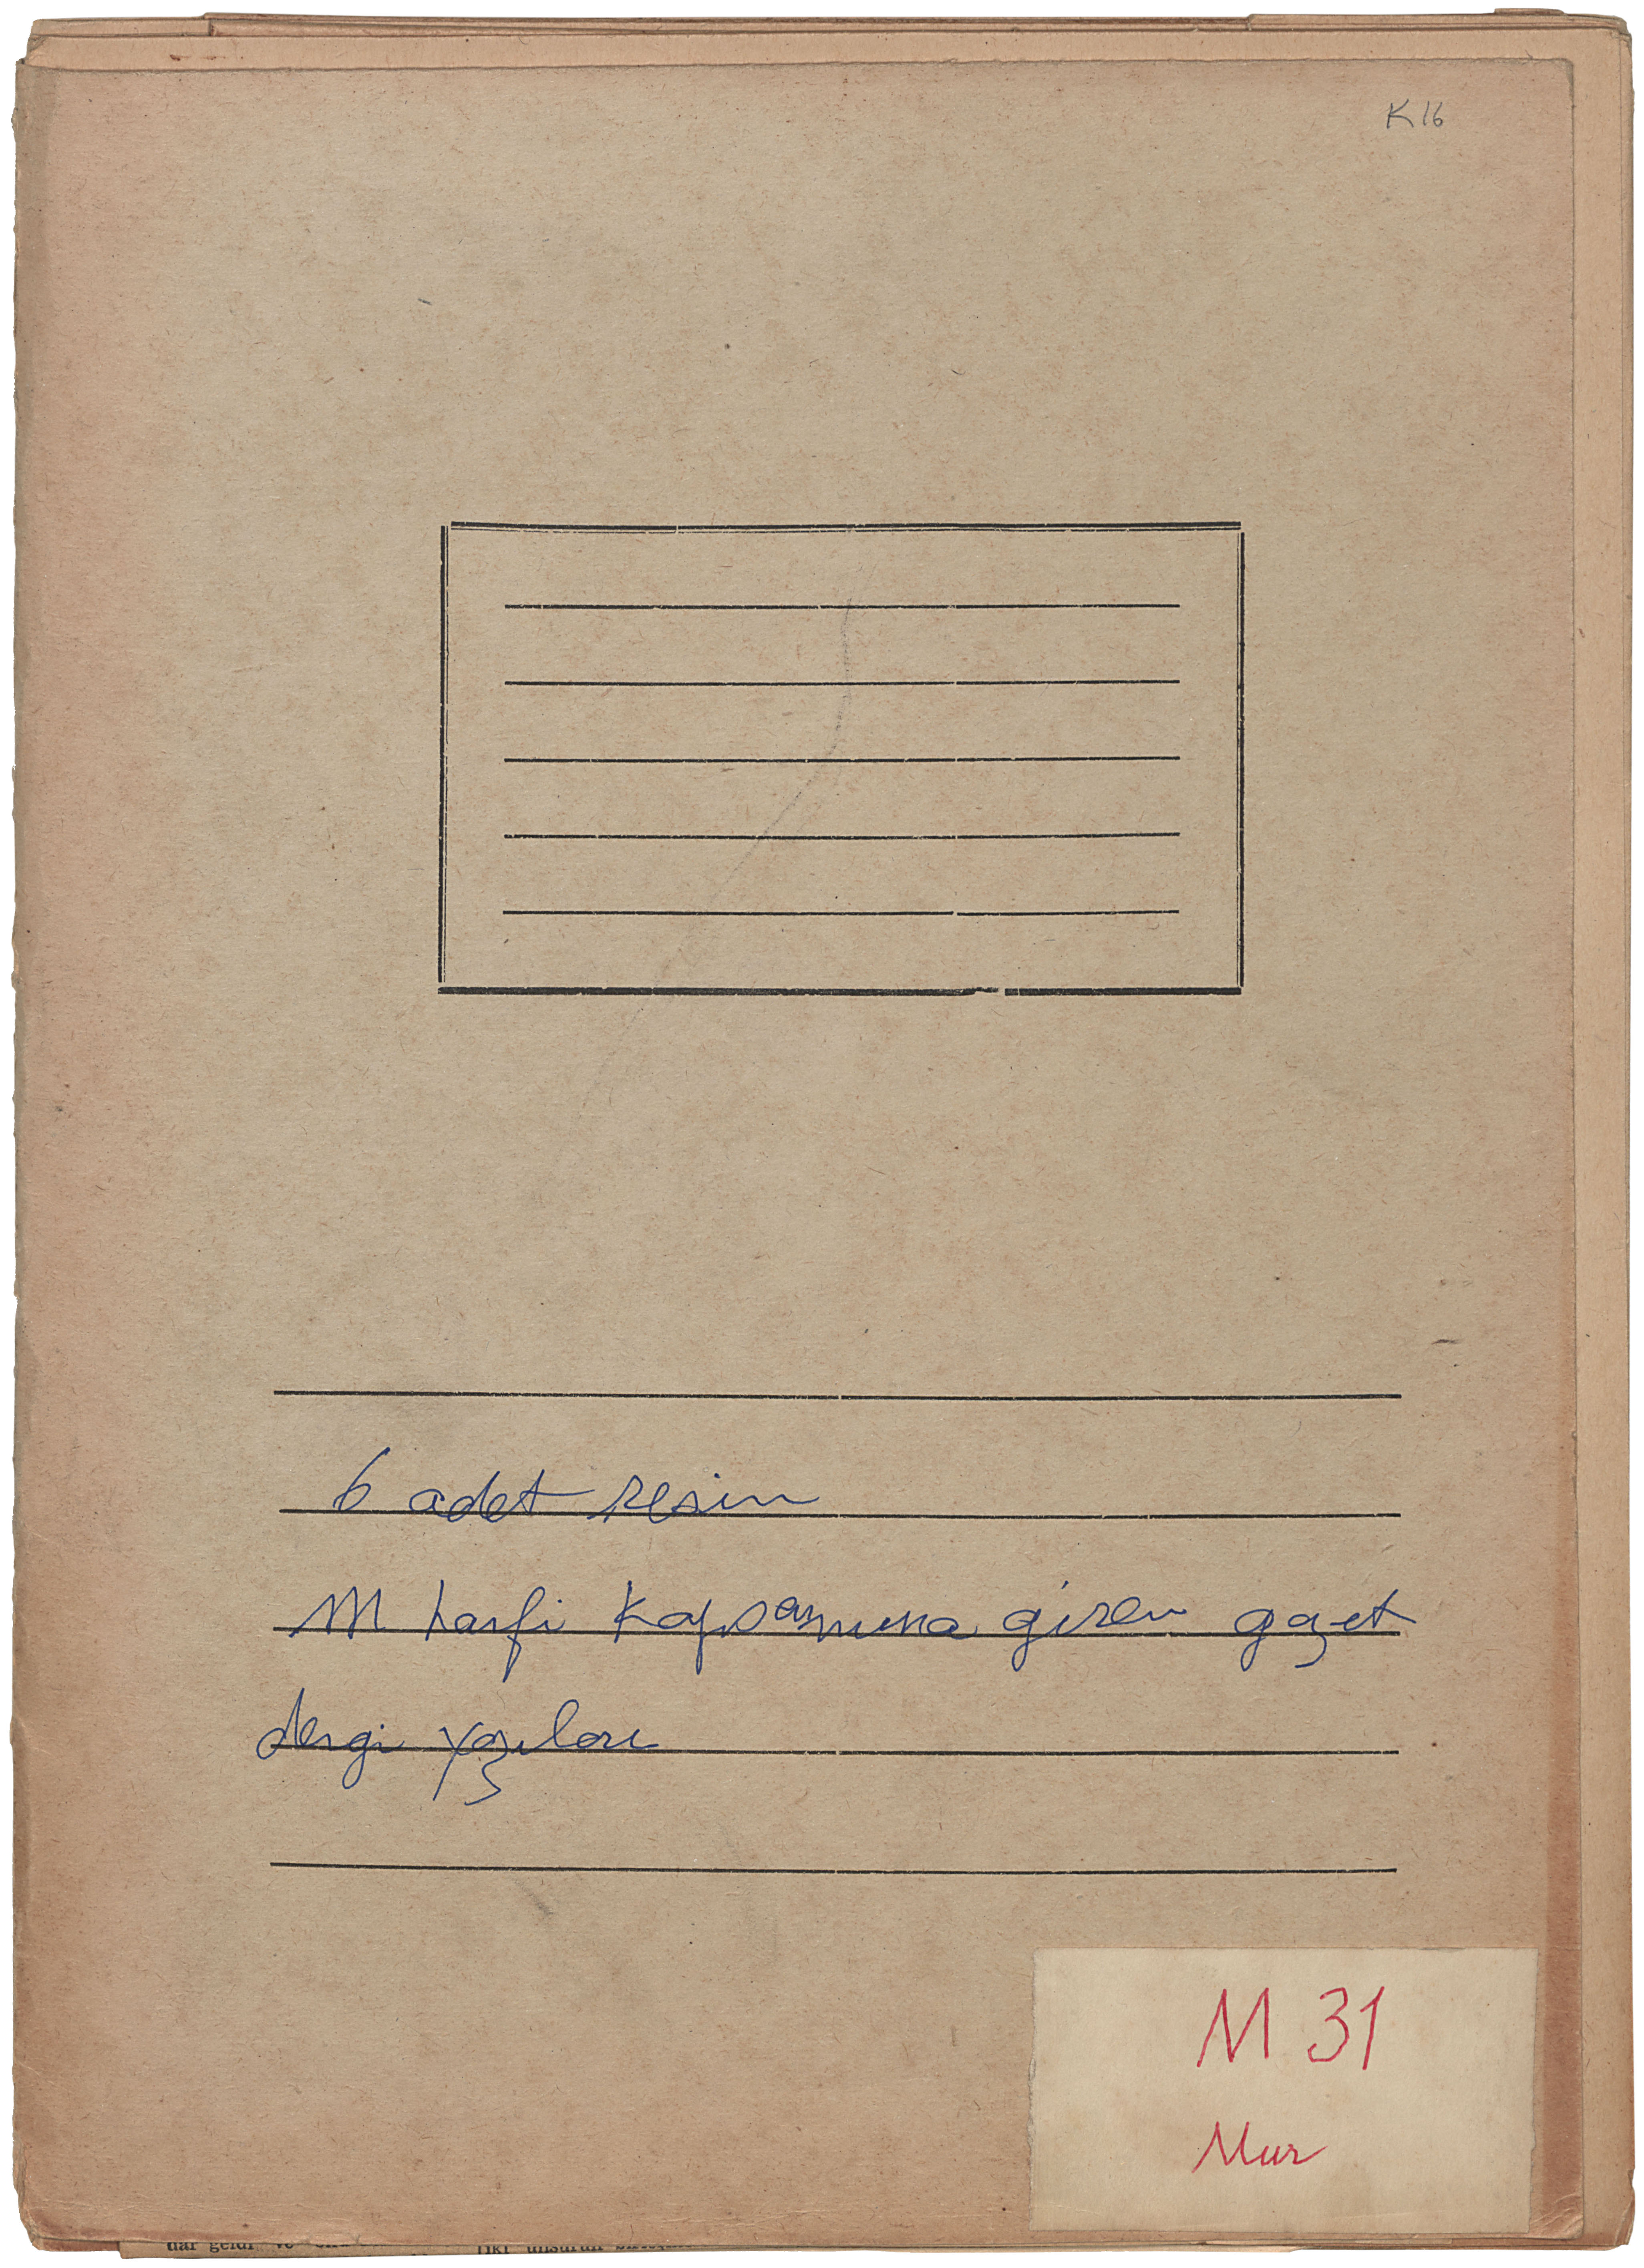 K 16
6 adet resim
M harfi kapsamına giren gazet
dergi yazıları
M 31
Mur
dar geldi ve